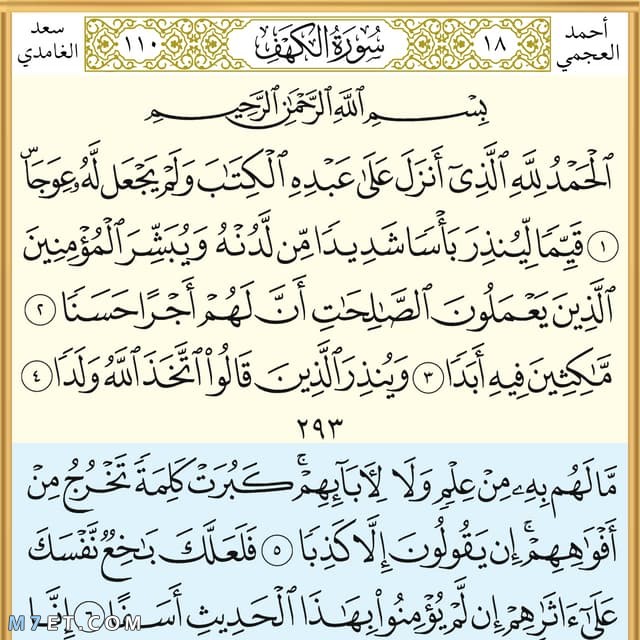 أحمد العجمي
١٨ سُورَةُ الْكَهْفِ ١١٠
سعد الغامدي
بِسْمِ ٱللَّهِ ٱلرَّحْمَٰنِ ٱلرَّحِيمِ
ٱلْحَمْدُ لِلَّهِ ٱلَّذِىٓ أَنزَلَ عَلَىٰ عَبْدِهِ ٱلْكِتَٰبَ وَلَمْ يَجْعَل لَّهُۥ عِوَجَاۜ
١ قَيِّمًا لِّيُنذِرَ بَأْسًا شَدِيدًا مِّن لَّدُنْهُ وَيُبَشِّرَ ٱلْمُؤْمِنِينَ
ٱلَّذِينَ يَعْمَلُونَ ٱلصَّٰلِحَٰتِ أَنَّ لَهُمْ أَجْرًا حَسَنًا ٢
مَّٰكِثِينَ فِيهِ أَبَدًا ٣ وَيُنذِرَ ٱلَّذِينَ قَالُوا۟ ٱتَّخَذَ ٱللَّهُ وَلَدًا ٤
٢٩٣
مَّا لَهُم بِهِۦ مِنْ عِلْمٍ وَلَا لِـَٔابَآئِهِمْ ۚ كَبُرَتْ كَلِمَةً تَخْرُجُ مِنْ
أَفْوَٰهِهِمْ ۚ إِن يَقُولُونَ إِلَّا كَذِبًا ٥ فَلَعَلَّكَ بَٰخِعٌ نَّفْسَكَ
عَلَىٰٓ ءَاثَٰرِهِمْ إِن لَّمْ يُؤْمِنُوا۟ بِهَٰذَا ٱلْحَدِيثِ أَسَفًا ٦ إِنَّا
M7ET.COM